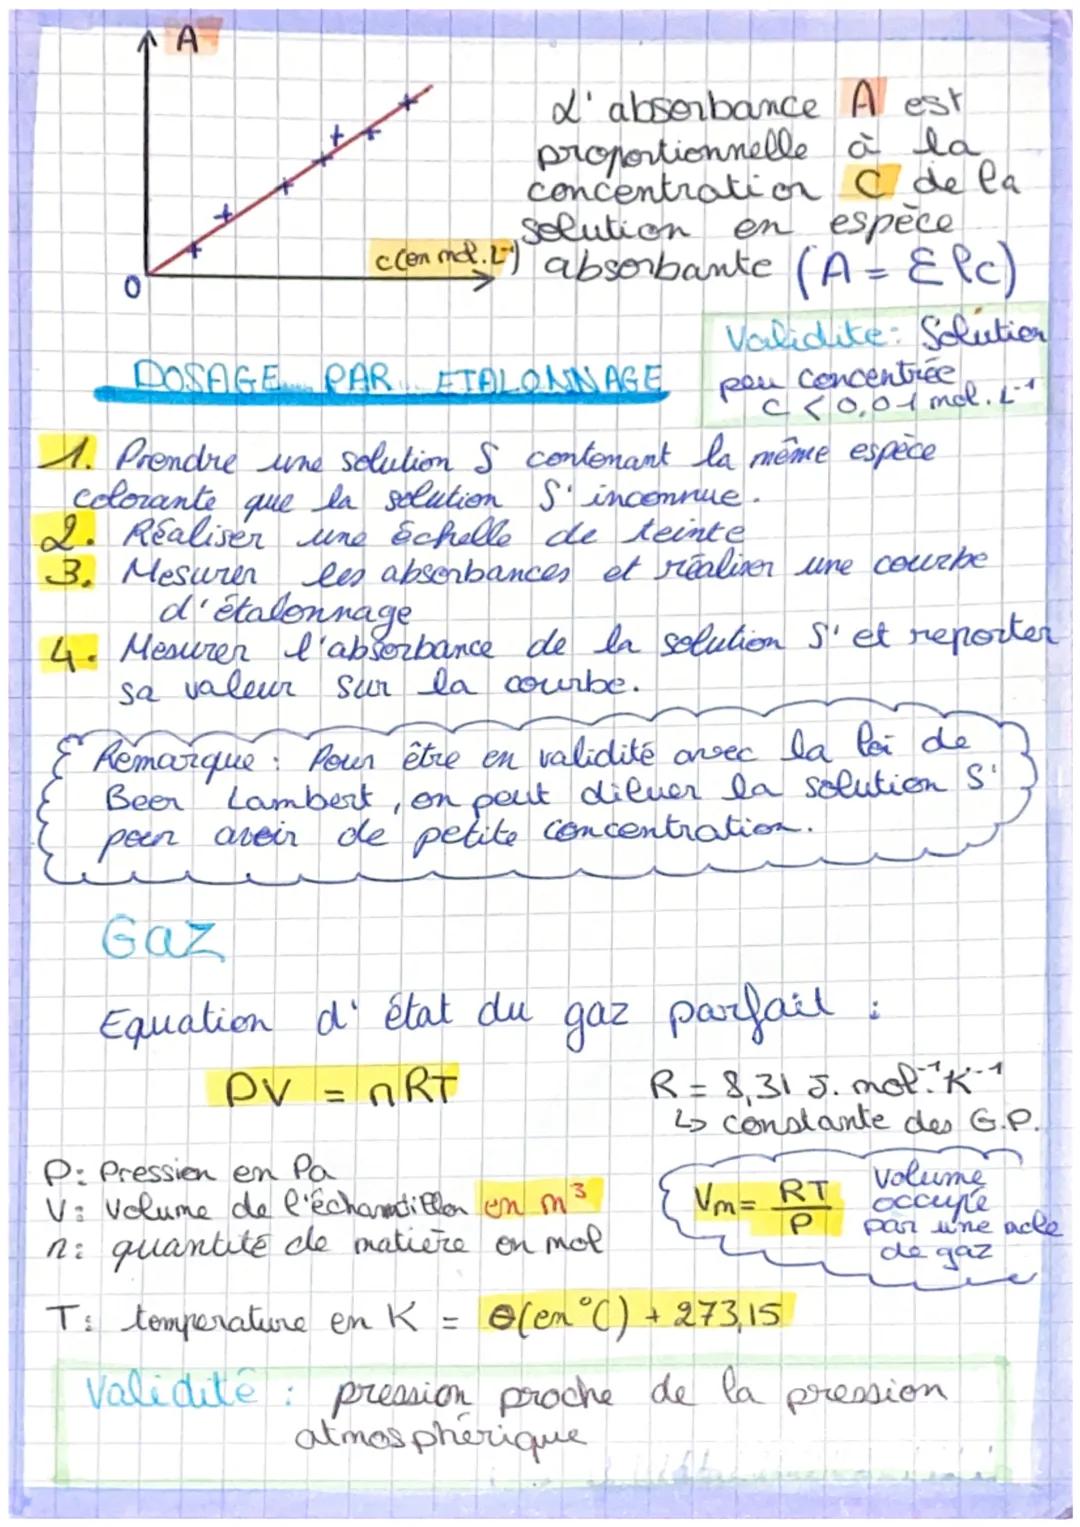 A
c (en mol.L⁻¹)
O
L'absorbance A est
proportionnelle à la
concentration C de la
solution en espèce
absorbante (A = Ɛlc)
Validité : Solution
peu concentrée
C < 0,01 mol.L⁻¹
DOSAGE PAR ETALONNAGE
1. Prendre une solution S contenant la même espèce
colorante que la solution S' inconnue.
2. Réaliser une échelle de teinte
3. Mesurer les absorbances et réaliser une courbe
d'étalonnage
4. Mesurer l'absorbance de la solution S' et reporter
sa valeur sur la courbe.
Remarque : Pour être en validité avec la loi de
Beer Lambert, on peut diluer la solution S'
pour avoir de petite concentration.
Gaz
Equation d'état du gaz parfait :
PV = nRT
R = 8,31 J.mol⁻¹.K⁻¹
↳ constante des G.P.
P : Pression en Pa
V : Volume de l'échantillon en m³
n : quantité de matière en mol
Vm = RT/P
Volume
occupé
par une mole
de gaz
T : temperature en K = θ(en °C) + 273,15
Validité : pression proche de la pression
atmosphérique